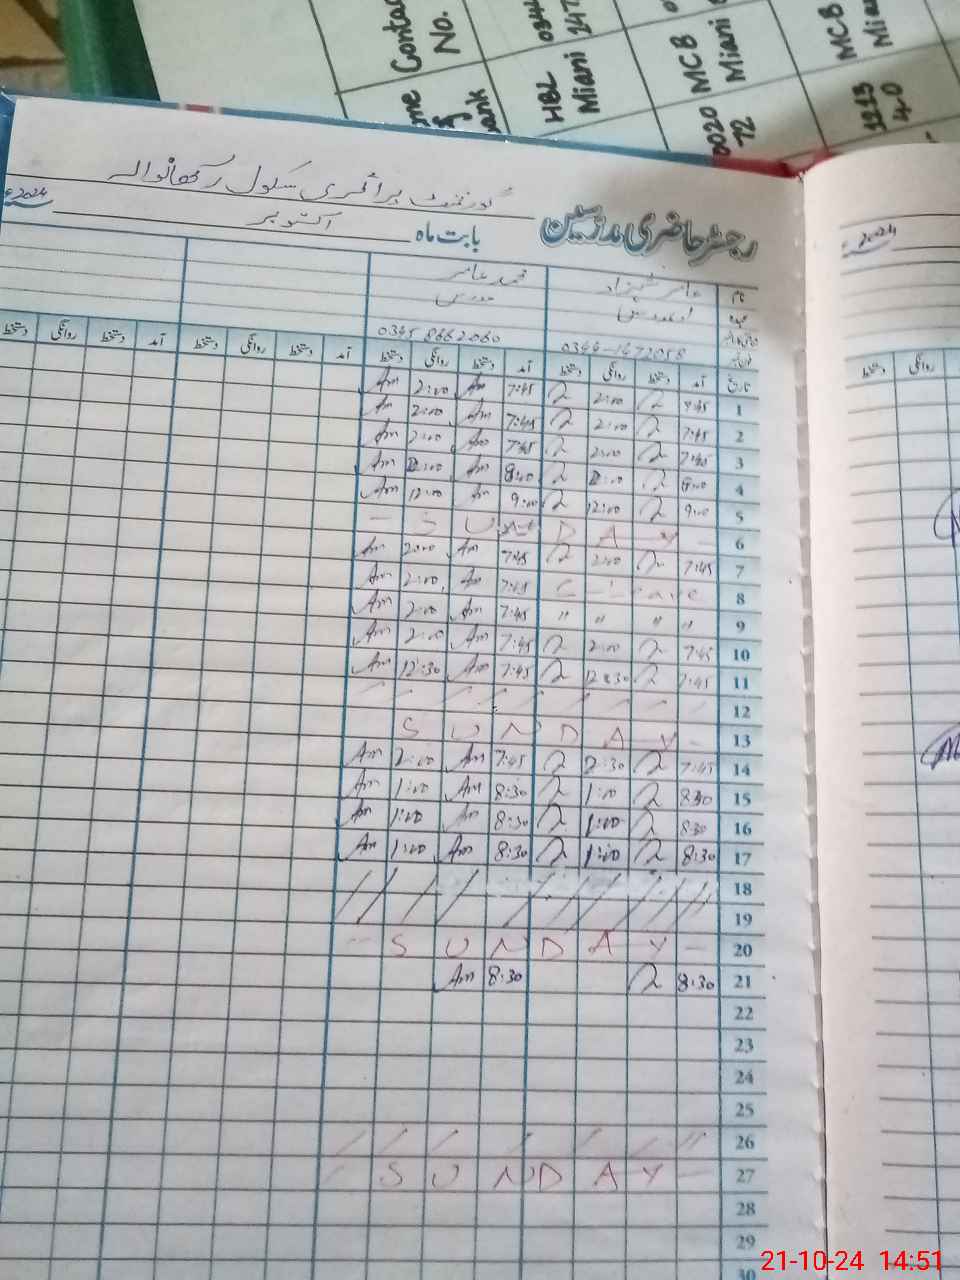 Contac
No.
HBL
Miani
MCB
Miani
0020
72
MCB
1213
40
گورنمنٹ پرائمری سکول رکھانوالہ
رجسٹر حاضری مدرسین
بابت ماہ اکتوبر 2024ء
2024ء
نام عامر شہزاد محمد عامر
عہدہ مدرس
0344-1472058 0345 8662060
تاریخ آمد دستخط روانگی دستخط آمد دستخط روانگی دستخط آمد دستخط روانگی دستخط آمد دستخط روانگی دستخط
روانگی دستخط
1 7:45 2:00 7:45 Am 2:00 Am
2 7:45 2:00 7:45 Am 2:00 Am
3 7:45 2:00 7:45 Am 2:00 Am
4 8:00 Am Am
5 9:00 12:00 9:00 Am 12:00 Am
6 - S U N D A Y -
7 7:45 2:00 7:45 Am 2:00 Am
8 C-Leave 7:45 Am 2:00 Am
9 " " " " 7:45 Am 2:00 Am
10 7:45 2:00 7:45 Am 2:00 Am
11 7:45 12:30 7:45 Am 12:30 Am
12
13 S U N D A Y -
14 7:45 2:30 7:45 Am 2:00 Am
15 8:30 1:00 8:30 Am 1:00 Am
16 8:30 1:00 8:30 Am 1:00 Am
17 8:30 1:00 8:30 Am 1:00 Am
18
19
20 - S U N D A Y -
21 8:30 8:30 Am
22
23
24
25
26
27 - S U N D A Y -
28
29
30
21-10-24 14:51